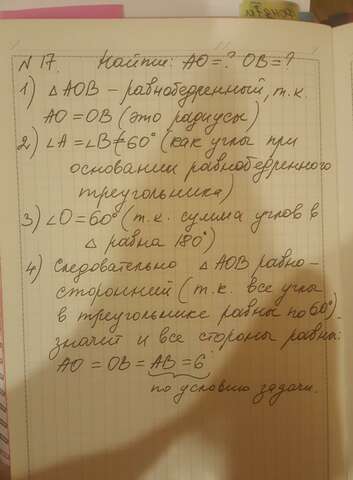 № 17. Найти: AO=? OB=?
1) △AOB – равнобедренный, т.к.
AO = OB (это радиусы)
2) ∠A = ∠B = 60° (как углы при
основании равнобедренного
треугольника)
3) ∠O = 60° (т.к. сумма углов в
△ равна 180°)
4) Следовательно △AOB равно-
сторонний (т.к. все углы
в треугольнике равны по 60°)
значит и все стороны равны:
AO = OB = AB = 6
по условию задачи.